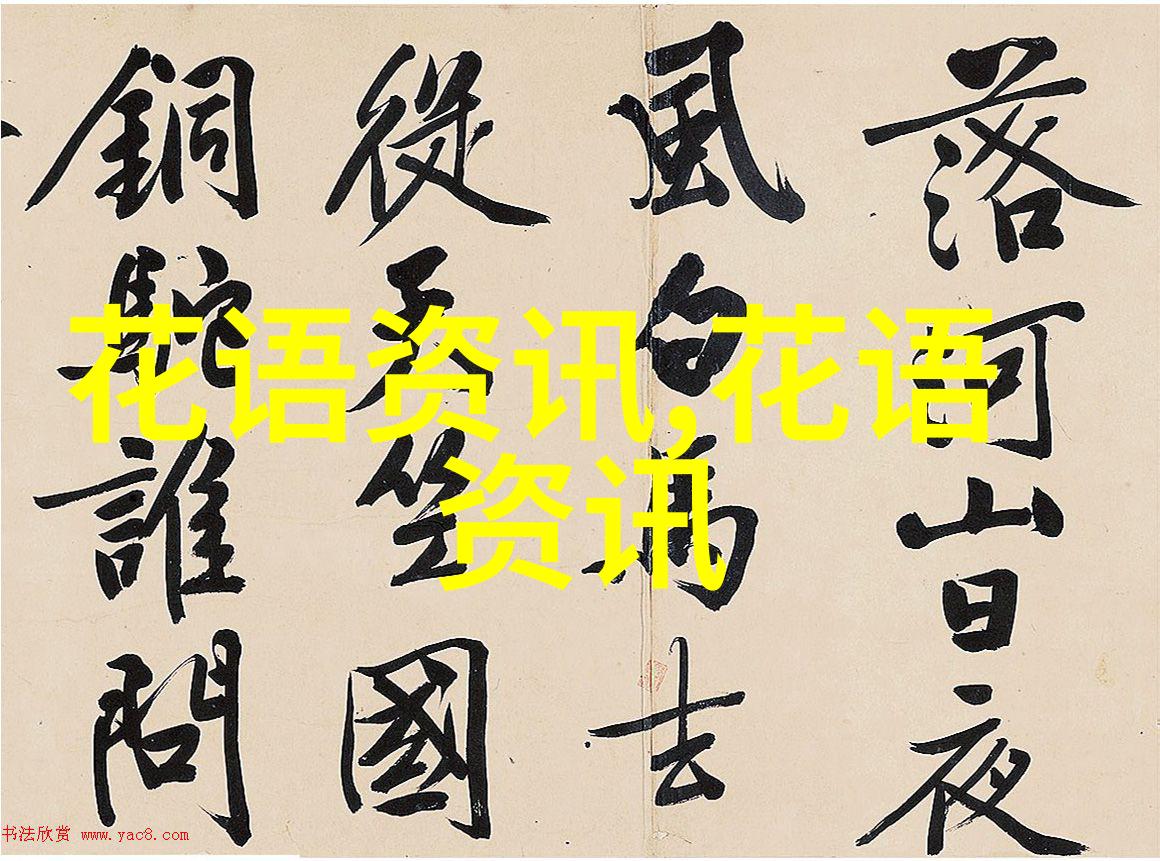 落河山日夜
風白馬去
從天竺國
銅駝誰問
花语资讯,花语
资讯
书法欣赏 www.yac8.com